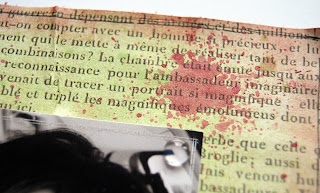 liquensant des
t-on compter avec un homme si précieux, et l
ment qui le mette à même de réaliser tant de be
combinaisons? La flamme était tenue jusqu'aux
reconnaissance pour l'ambassadeur imaginair
venait de tracer un portrait si magnifique elle
blé et triplé les magnifiques émolumens dont
rbe que celle d
roglie; aussi d
ais venons hu
bassadeurs